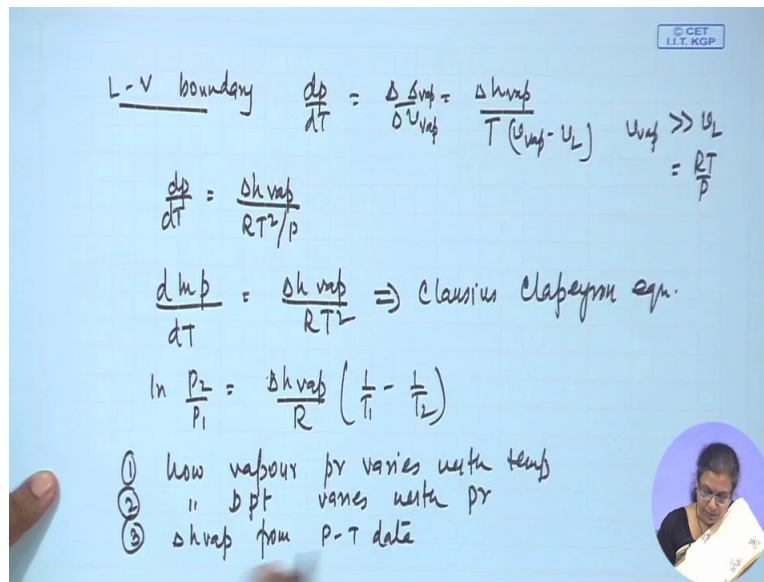 © CET
I.I.T. KGP
L-V boundary dp/dT = Δs_vap/Δv_vap = Δh_vap/T(v_vap - v_L) v_vap >> v_L
= RT/P
dp/dT = Δh_vap/RT²/P
d ln p/dT = Δh_vap/RT² ⇒ Clausius Clapeyron eqn.
ln P₂/P₁ = Δh_vap/R (1/T₁ - 1/T₂)
① how vapour pr varies with temp
② " b pt varies with pr
③ Δh_vap from P-T data